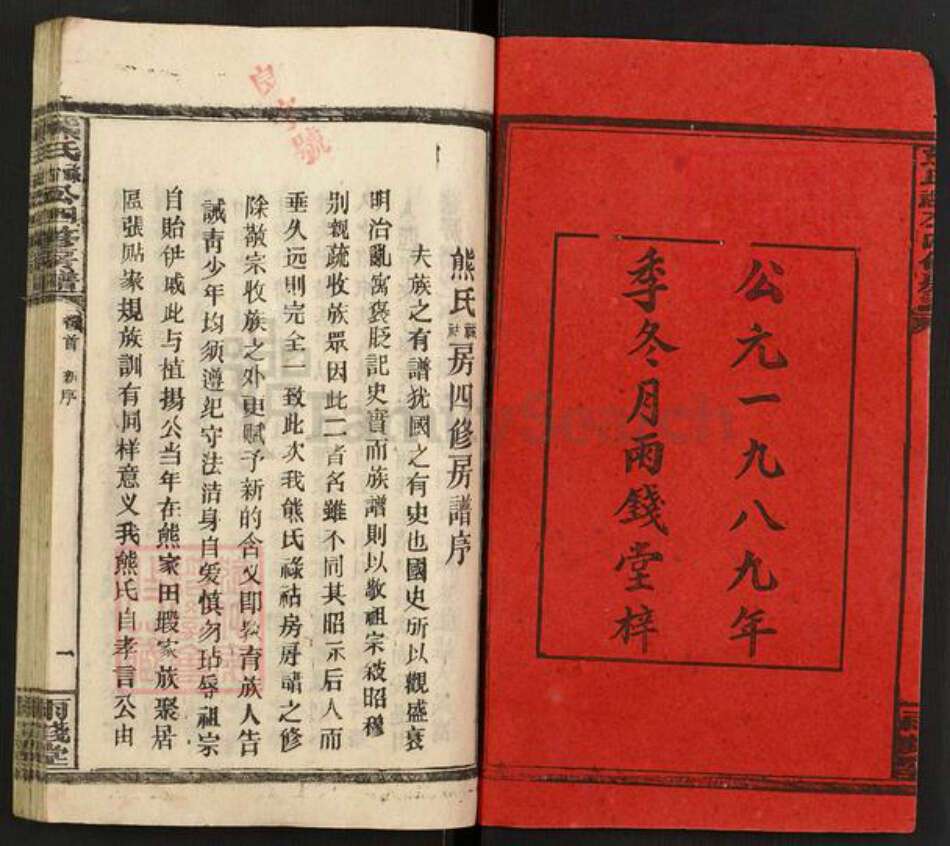 公元一九八九年
季冬月雨錢堂梓
良字號
熊氏祿祜房四修房譜序
夫族之有譜犹國之有史也國史所以觀盛衰
明治亂寓褒貶記史實而族譜則以敬祖宗敍昭穆
別親疏收族眾因此二者名雖不同其昭示后人而
垂久远則完全一致此次我熊氏祿祜房房譜之修
除敬宗收族之外更赋予新的含义即教育族人告
誡靑少年均須遵纪守法洁身自爱慎勿玷辱祖宗
自贻伊戚此与植揚公当年在熊家田塅家族聚居
區張贴家規族訓有同样意义我熊氏自孝言公由
卷首 新序 一
雨錢堂